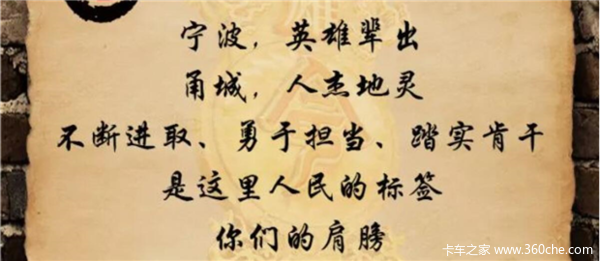 宁波，英雄辈出
甬城，人杰地灵
不断进取、勇于担当、踏实肯干
是这里人民的标签
你们的肩膀
卡车之家 www.360che.com